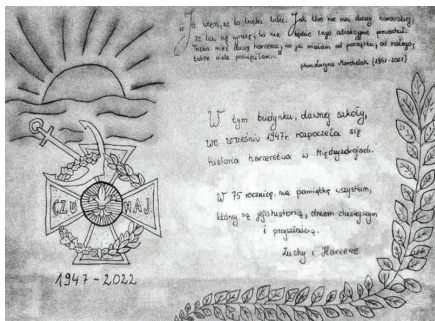 "Ja wiem, że to trzeba lubić. Jak ktoś nie ma duszy harcerskiej,
że tak się wyrażę, to nie będzie tego atrakcyjnie prowadził.
Trzeba mieć duszę harcerza, no ja miałam od początku, od małego,
takie wiele poświęciłam."
phm Jadwiga Marchelak (1941-2021)
W tym budynku, dawnej szkoły,
we wrześniu 1947r. rozpoczęła się
historia harcerstwa w Międzyzdrojach.
W 75 rocznicę, na pamiątkę wszystkim,
którzy są jego historią, dniem dzisiejszym
i przyszłością.
Zuchy i Harcerze
CZU WAJ
1947 - 2022